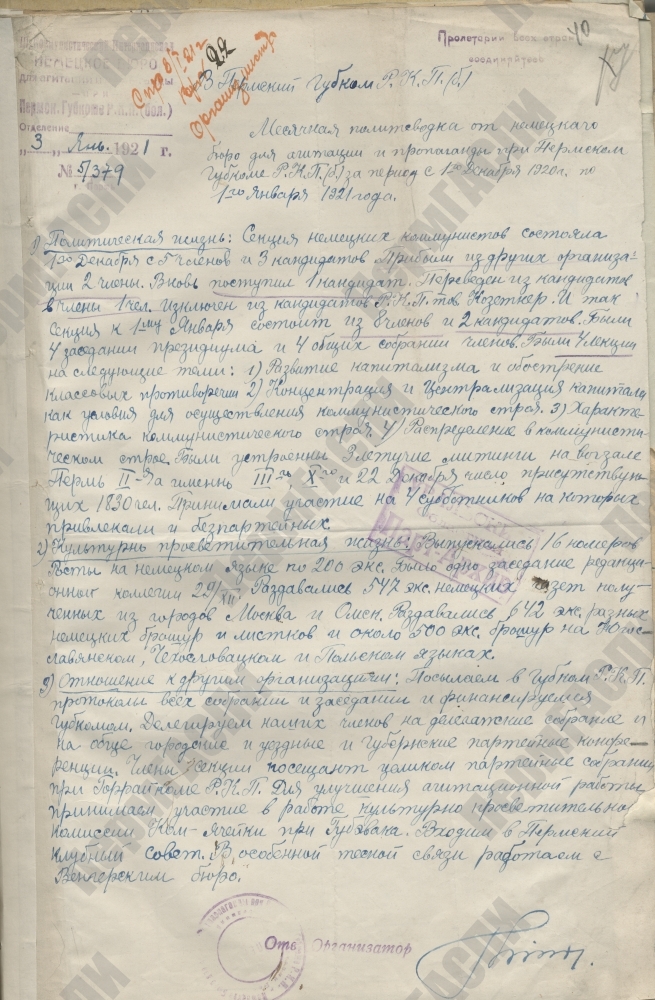 НЕМЕЦКОЕ БЮРО
Пермск. Губкоме Р.К.П. (бол.)
Отделение
„3„ Янв. 1921 г.
№ 5/379
Организатор
Пролетарии всех стран
соединяйтесь
40
В Пермский Губком Р.К.П.(б)
Месячная политсводка от немецкаго
бюро для агитации и пропаганды при Пермском
Губкоме Р.К.П.(б) за период с 1го Декабря 1920г. по
1го Января 1921 года.
1) Политическая жизнь: Секция немецких коммунистов состояла
1го Декабря с 5 членов и 3 кандидатов Прибыли из других организа-
ции 2 члены. Вновь поступил 1 кандидат. Переведен из кандидатов
в члены 1 чел. Изключен из кандидатов Р.К.П. тов Козеткер. И так
Секция к 1му Января состоит из 8 членов и 2 кандидатов. Были
4 заседании президиума и 4 общих собрании членов. Были 4 лекции
на следующие темы: 1) Развитие капитализма и обострение
классовых противоречии 2) Концентрация и Централизация капитала
как условия для осуществления коммунистического строя. 3) Характе-
ристика коммунистического строя 4) Распределение в коммунисти-
ческом строе. Были устроены 3 летучие митинги на вокзале
Пермь II-я а именно III го X го и 22 Декабря число присутствую-
щих 1830 чел. Принимали участие на 4 субботников на которых
привлекали и безпартейных.
2) Культурно просветительная жизнь: Выпускались 16 номеров
Росты на немецком языке по 200 экз. Было одно заседание редакци-
онной коллегии 29/XII Раздавались 547 экз. немецких газет полу-
ченных из городов Москва и Омск. Раздавались 642 экз. разных
немецких брошур и листков и около 500 экз. брошур на Югос-
славянском, Чехословацком и Польском языках.
3) Отношение к другим организациям: Посылаем в Губком Р.К.П.
протоколы всех собрании и заседании и финансируемся
Губкомом. Делегируем наших членов на делегатские собрание и
на обще городские и уездные и Губернские партейные конфе-
ренции. Члены секции посещают целиком партейные собрании
при Горрайкоме Р.К.П. Для улучшения агитационной работы
принимаем участие в работе культурно просветительной
комиссии Ком-ячейки при Губэвака. Входим в Пермский
клубный совет. В особенной тесной связи работаем с
Венгерским бюро.
Отв. Организатор